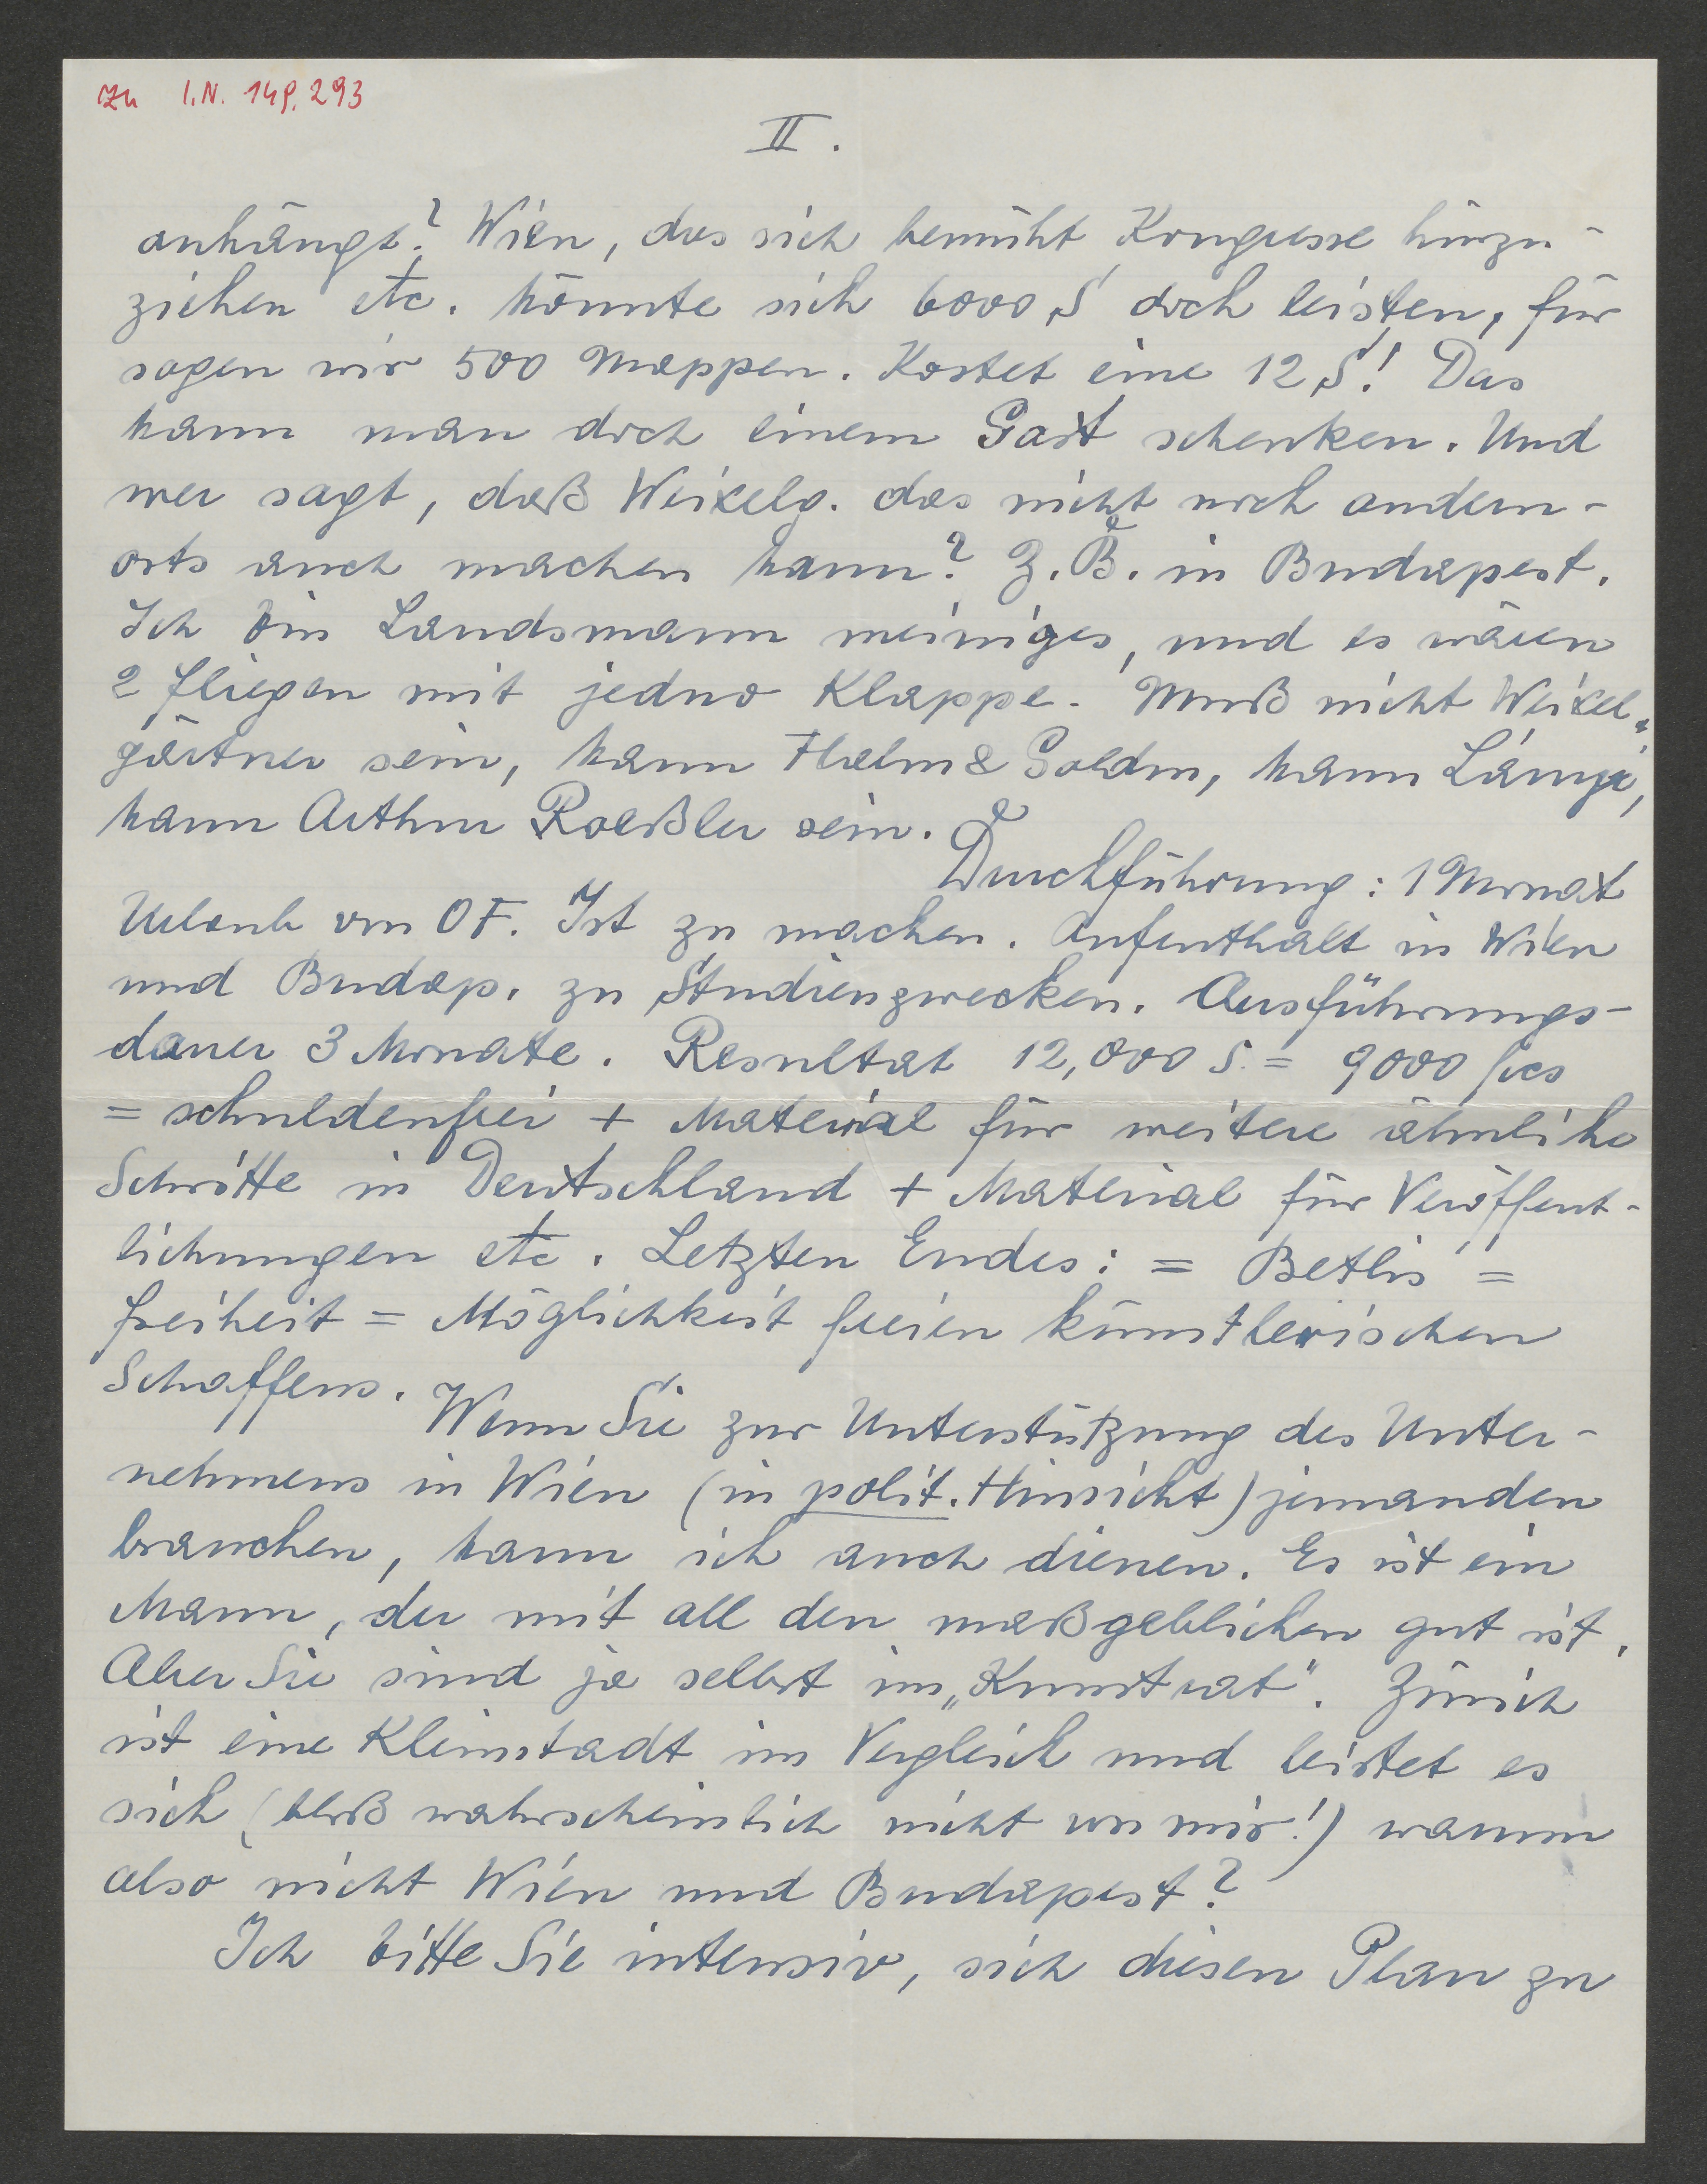 zu I.N. 149.293
II.
anhängt? Wien, das sich bemüht Kongresse hinzu-
ziehen etc. könnte sich 6000 S doch leisten, für
sagen wir 500 Mappen. Kostet eine 12 S! Das
kann man doch einem Gast schenken. Und
wer sagt, daß Weixelg. das nicht noch andern-
orts auch machen kann? Z.B. in Budapest.
Ich bin Landsmann meiniges, und es wären
2 Fliegen mit jedno Klappe. Muß nicht Weixel-
gärtner sein, kann Halm & Goldm, kann Lányi,
kann Arthur Roeßler sein.
Durchführung: 1 Monat
Urlaub von OF. Ist zu machen. Aufenthalt in Wien
und Budap. zu Studienzwecken. Ausführungs-
dauer 3 Monate. Resultat 12,000 S. = 9000 fres
= schuldenfrei + Material für weitere ähnliche
Schritte in Deutschland + Material für Veröffent-
lichungen etc. Letzten Endes: = Betlis =
Freiheit = Möglichkeit freien künstlerischen
Schaffens.
Wenn Sie zur Unterstützung des Unter-
nehmens in Wien (in polit. Hinsicht) jemanden
brauchen, kann ich auch dienen. Es ist ein
Mann, der mit all den maßgeblichen gut ist.
Aber Sie sind ja selbst im „Kunstrat". Zürich
ist eine Kleinstadt im Vergleich und leistet es
sich (bloß wahrscheinlich nicht von mir!) warum
also nicht Wien und Budapest?
Ich bitte Sie intensiv, sich diesen Plan zu